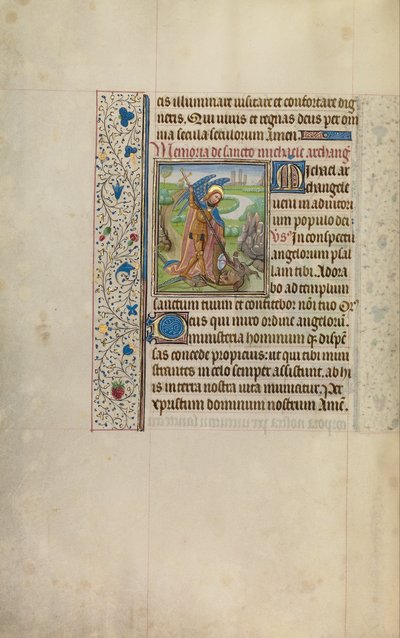 cis illuminare uisitare et confortare dig
neris. Qui uiuis et regnas deus per om
nia secula seculorum Amen.
Memoria de sancto michaele archang
Michael ar
changele
ueni in adiutori
um populo dei
Vs In conspectu
angelorum psal
lam tibi. Adora
bo ad templum
sanctum tuum et confitebor noi tuo Or
Deus qui miro ordine angelorum
ministeria hominum q dispen
sas concede propicius: ut qui tibi mini
strantes in celo semper assistunt. ab hi
is in terra nostra uita muniatur. Per
xpristum dominum nostrum Amen.